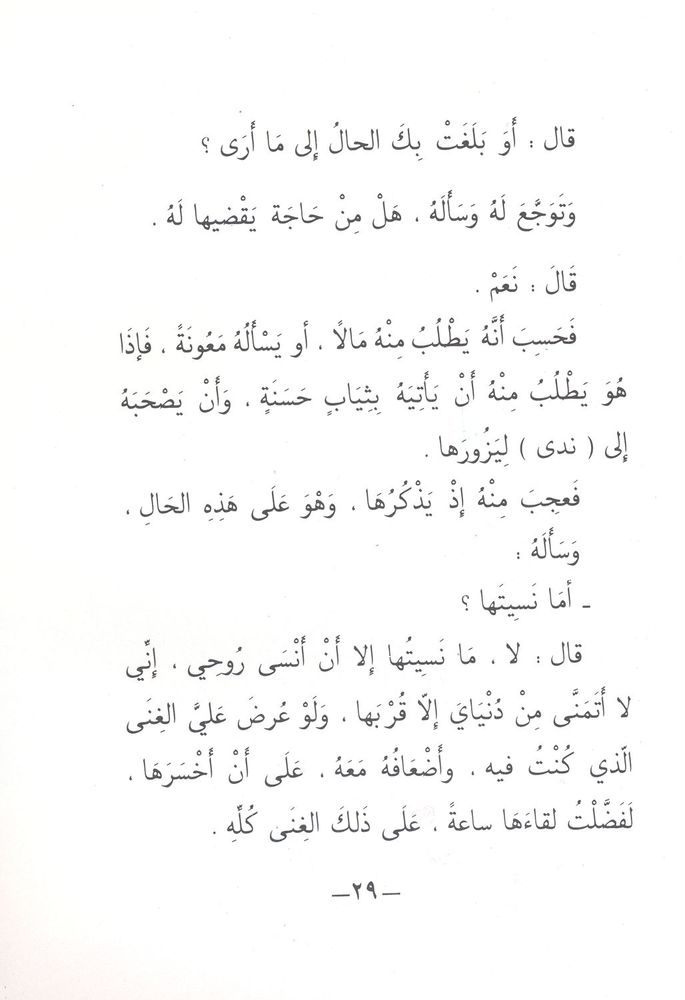 قال : أَوَ بَلَغَتْ بِكَ الحالُ إِلى مَا أَرَى ؟
وَتَوَجَّعَ لَهُ وَسَأَلَهُ ، هَلْ مِنْ حَاجَة يَقْضيها لَهُ .
قَالَ : نَعَمْ .
فَحَسِبَ أَنَّهُ يَطْلُبُ مِنْهُ مَالًا ، أو يَسْأَلُهُ مَعُونَةً ، فَإذَا
هُوَ يَطْلُبُ مِنْهُ أَنْ يَأَتِيَهُ بِثِيَابٍ حَسَنَةٍ ، وَأَنْ يَصْحَبَهُ
إلى ( ندى ) لِيَزُورَها .
فَعجِبَ مِنْهُ إذْ يَذْكُرُهَا ، وَهْوَ عَلَى هَذِهِ الحَالِ ،
وَسَأَلَهُ :
ـ أمَا نَسِيتَها ؟
قال : لا ، مَا نَسِيتُها إلا أَنْ أَنْسَى رُوحِي ، إنِّي
لا أَتَمَنَّى مِنْ دُنْيَايَ إلّا قُرْبَها ، وَلَوْ عُرضَ عَليَّ الغِنَى
الّذي كُنْتُ فيه ، وأَضْعَافُهُ مَعَهُ ، عَلَى أَنْ أَخْسَرَهَا ،
لَفَضَّلْتُ لقاءَهَا ساعةً ، عَلَى ذَلكَ الغِنَى كُلِّهِ .
—٢٩—